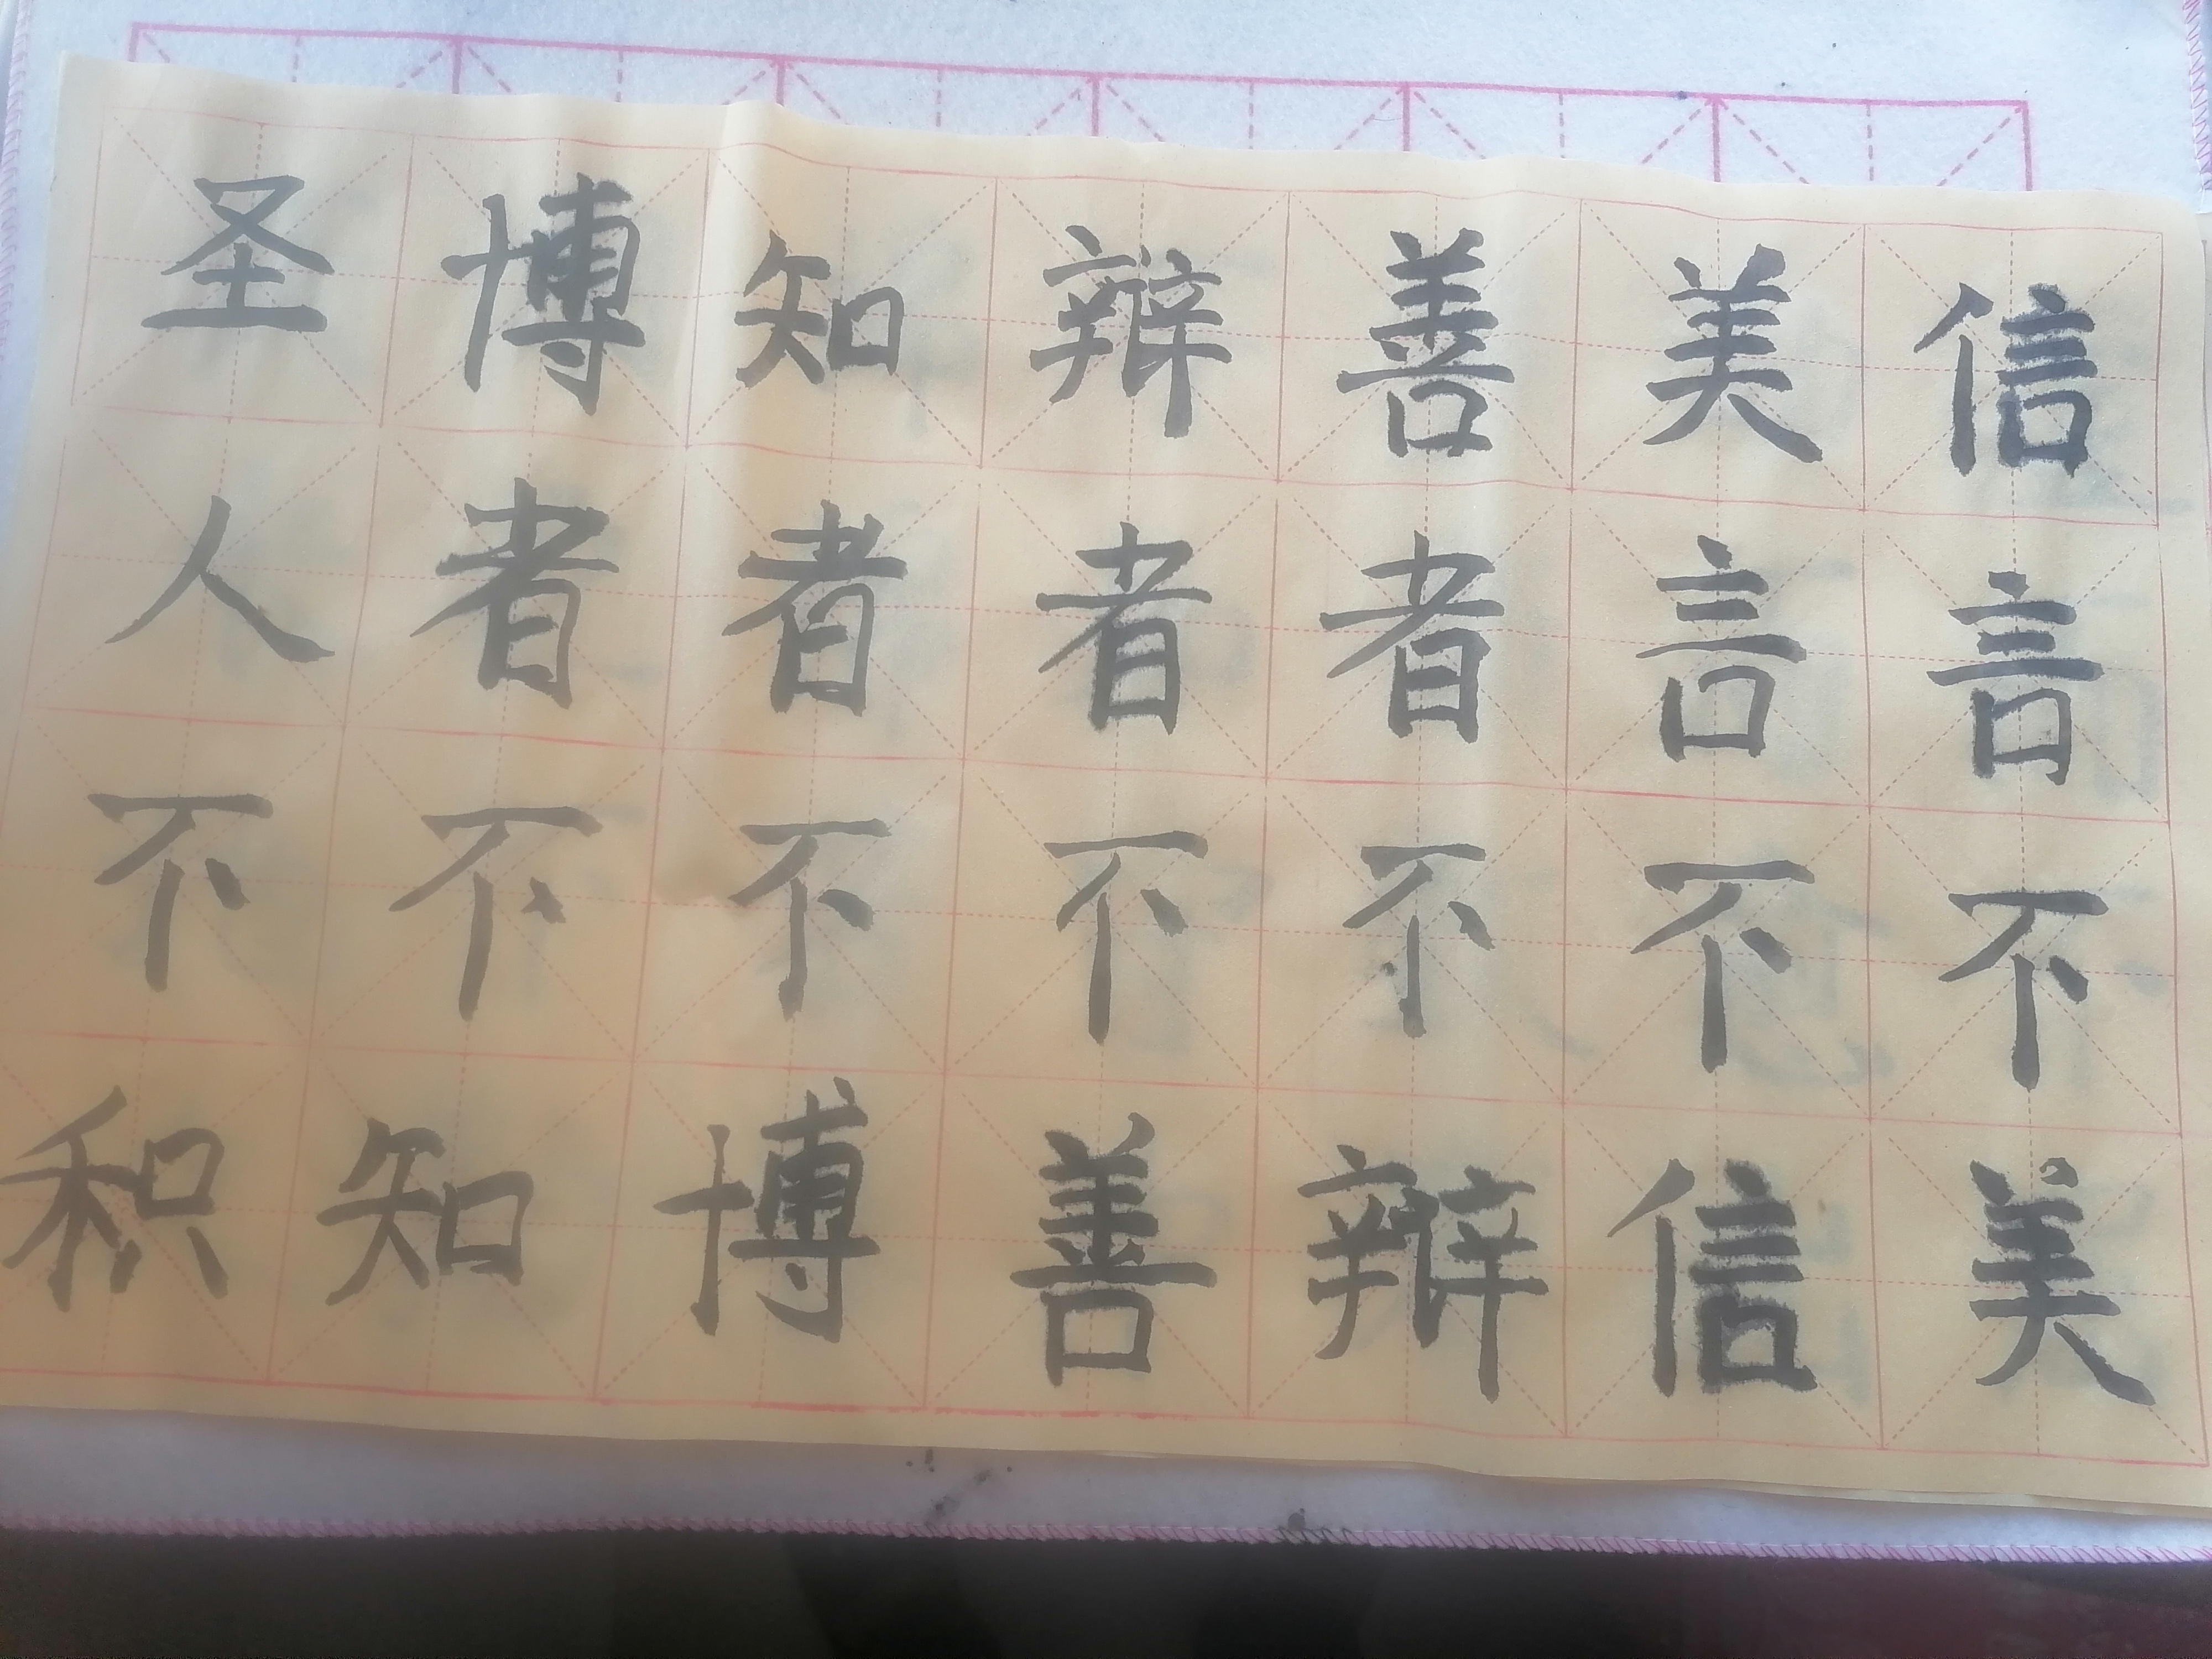 信言不美
美言不信
善者不辩
辩者不善
知者不博
博者不知
圣人不积